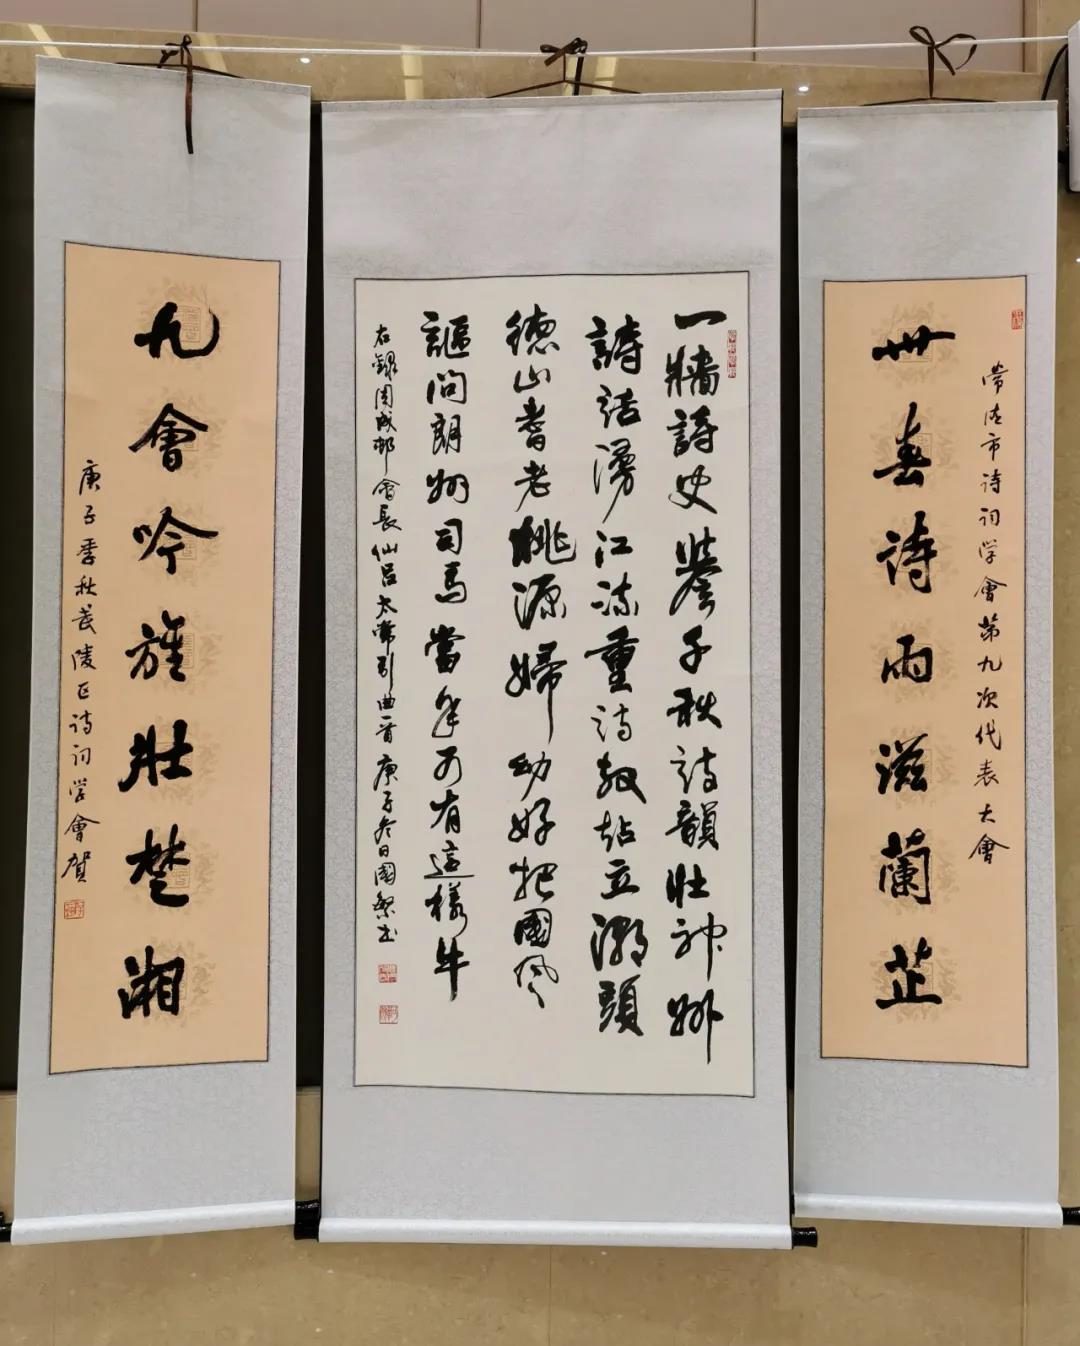 常德市诗词学會第九次代表大會
卅春詩雨滋蘭芷
一牆詩史譽千秋詩韻壯神州
詩話湧江流重詩教站立潮頭
德山耆老桃源婦幼好把國風
謳問朗州司馬當年可有這樣牛
右錄周成邨會長仙呂太常引曲一首庚子冬日國繁书
九會吟旌壯楚湘
庚子季秋武陵区诗词学會贺